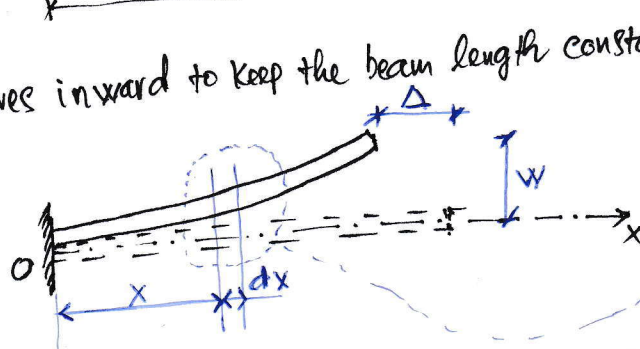 ves inward to keep the beam length const
Δ
W
O
x
X
dx